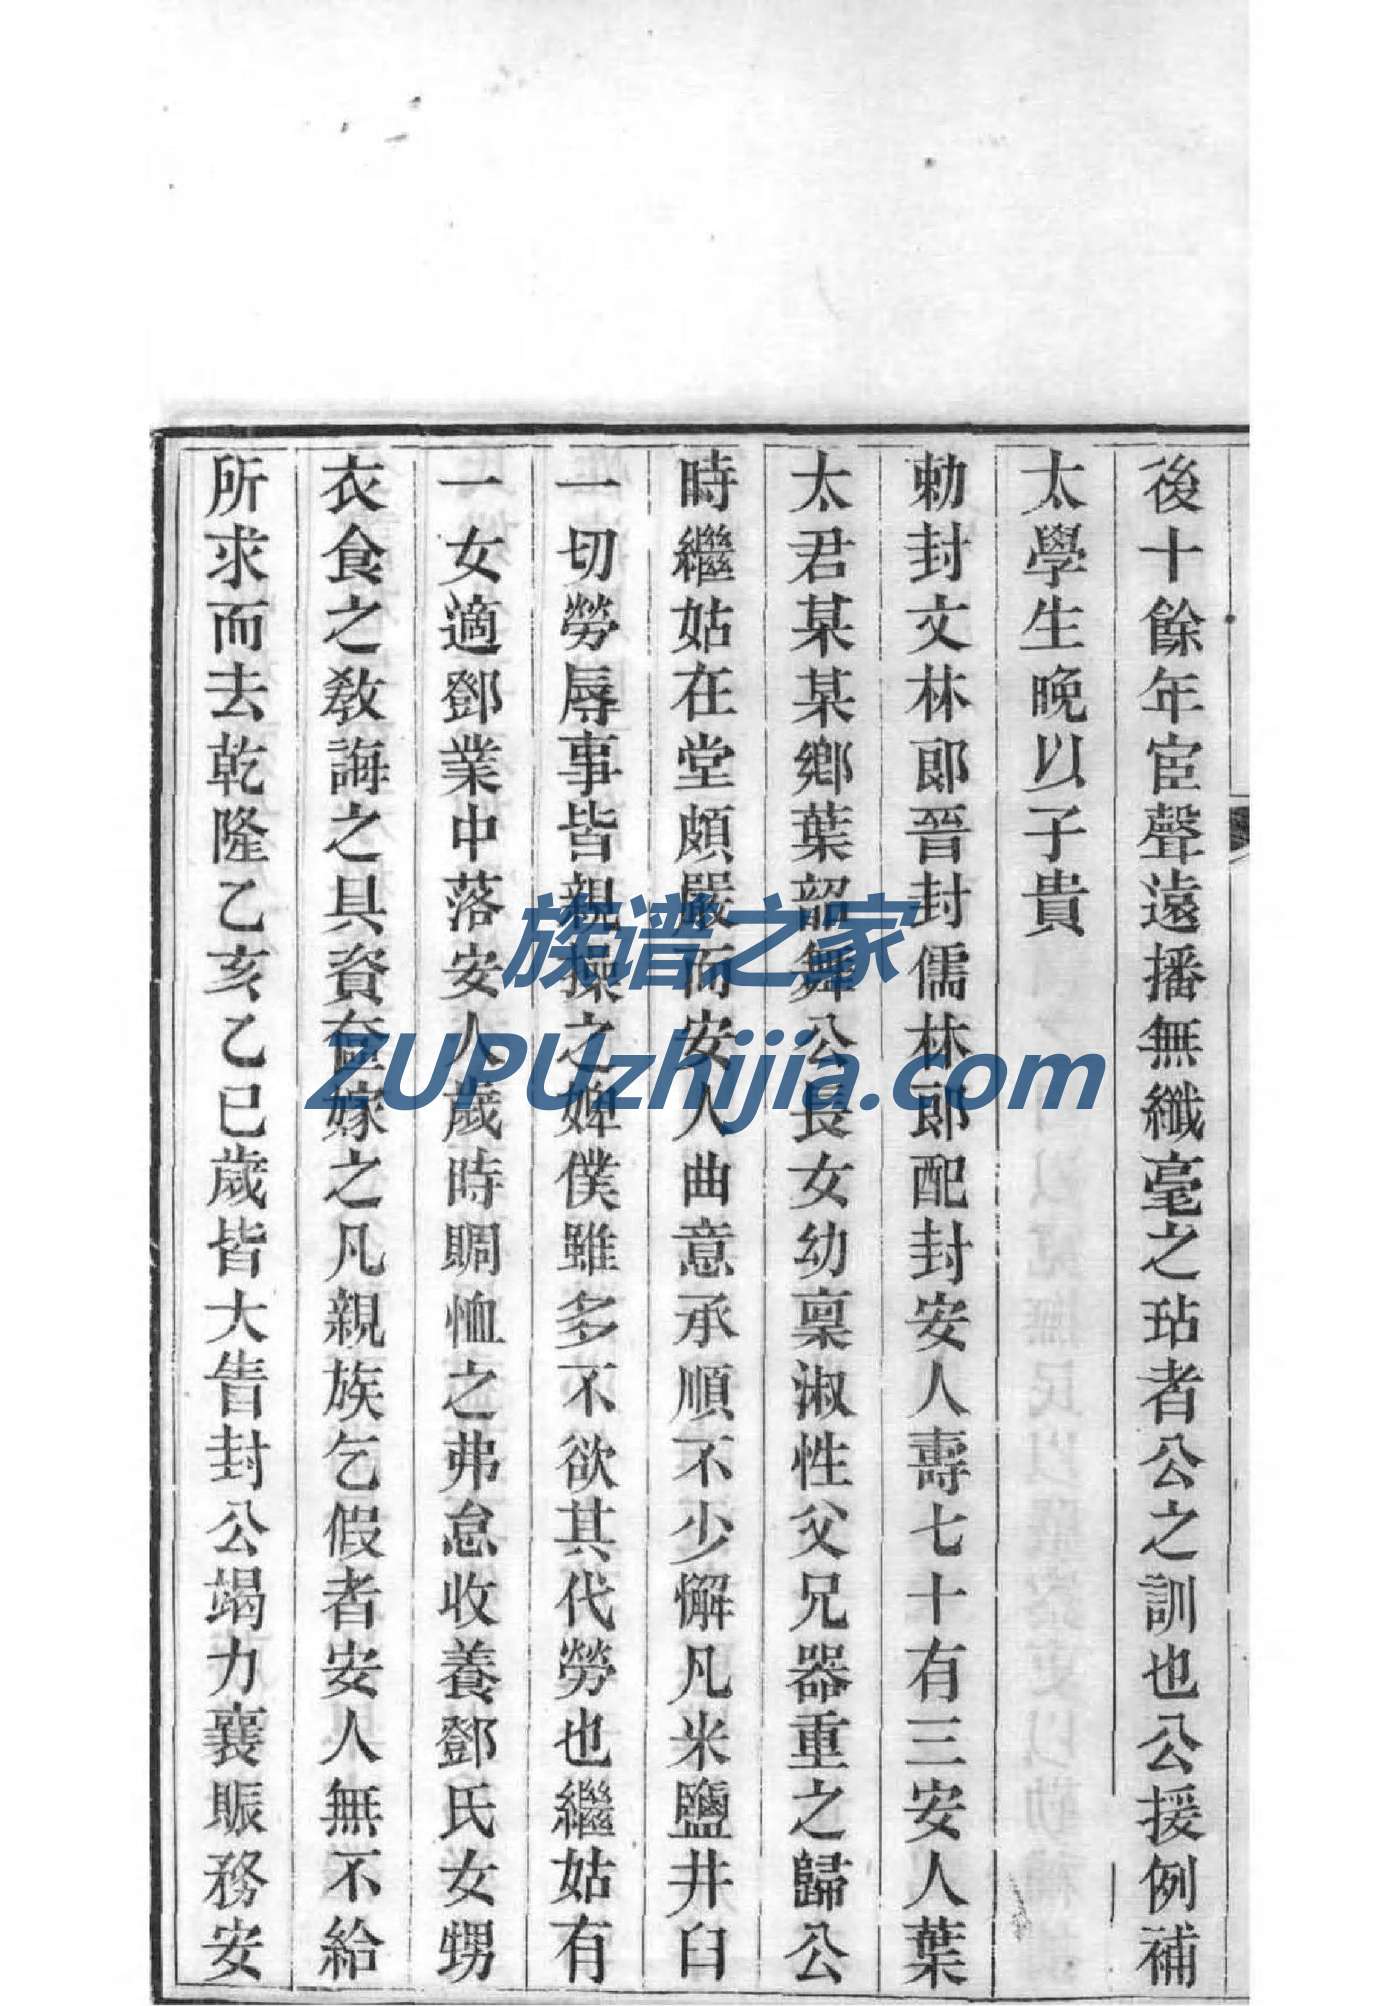 後十餘年宦聲遠播無纖毫之玷者公之訓也公援例補
太學生晚以子貴
勅封文林郎晉封儒林郎配封安人壽七十有三安人葉
太君某某鄉葉韶舞公長女幼稟淑性父兄器重之歸公
時繼姑在堂頗嚴而安人曲意承順不少懈凡米鹽井臼
一切勞辱事皆親操之婢僕雖多不欲其代勞也繼姑有
一女適鄧業中落安人歲時賙恤之弗怠收養鄧氏女甥
衣食之教誨之具資奩嫁之凡親族乞假者安人無不給
所求而去乾隆乙亥乙巳歲皆大眚封公竭力襄賑務安
族谱之家
ZUPUzhijia.com